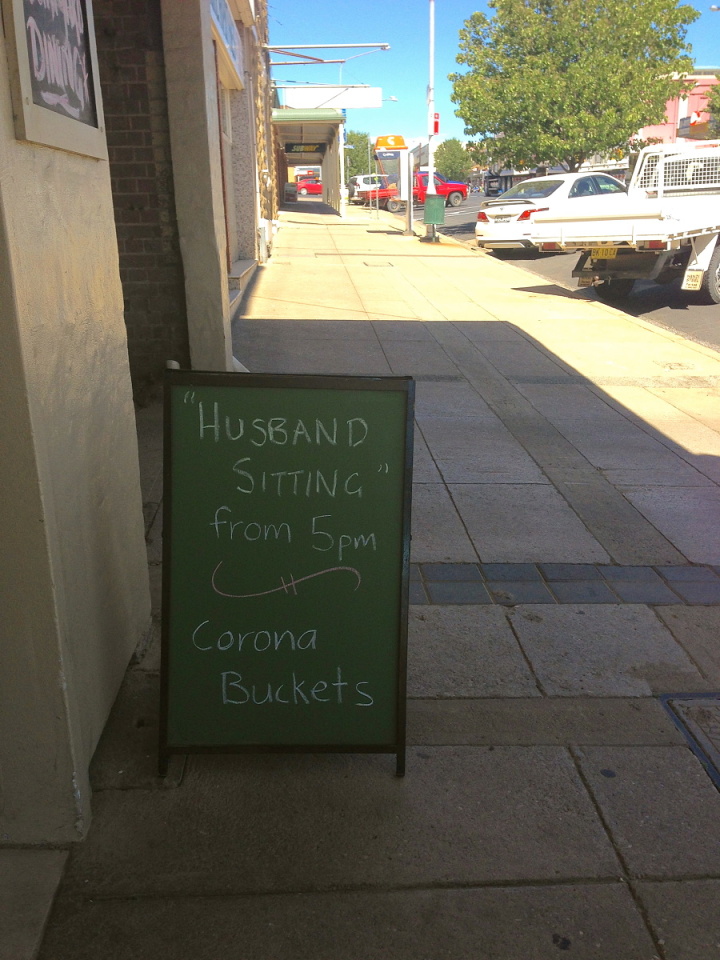 DINING
"HUSBAND
SITTING"
from 5pm
Corona
Buckets